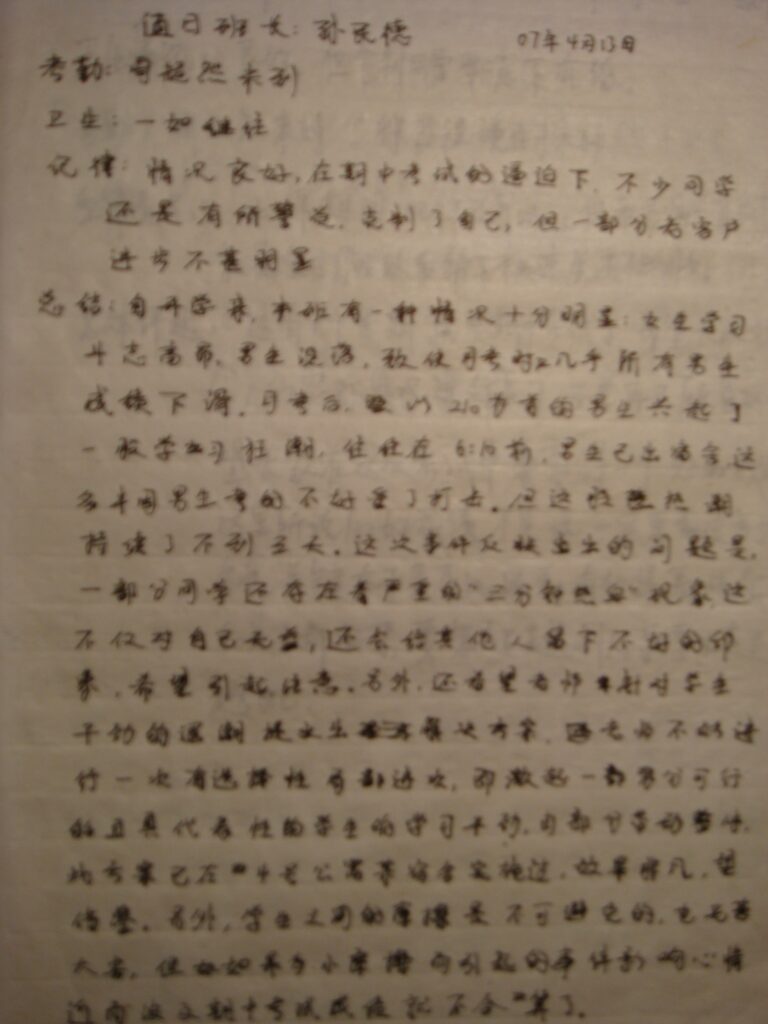 值日班长: 孙民德 07年4月13日
考勤: 超然未到
卫生: 一如继往
纪律: 情况良好, 在期中考试的逼迫下, 不少同学
还是有所警觉, 克制了自己, 但一部分老客户
进步不甚明显
总结: 自开学来, 本班有一种情况十分明显: 女生学习
斗志高昂, 男生没落, 致使月考时几乎所有男生
成绩下滑, 月考后, 以210为首的男生兴起了
一股学习狂潮, 往往在6:10前, 男生已出宿舍, 这
与本月男生考的不好受了打击, 但这股热潮
持续了不到三天, 这次事件反映出的问题是,
一部分同学还存在着严重的"三分钟热血"现象, 这
不仅对自己无益, 还会给其他人留下不好的印
象, 希望引起注意, 另外, 还希望老师针对学生
干劲的退潮提出解决方案, 老师不妨进
行一次有选择性, 即激起一部分可行
的且具代表性的学生的学习干劲, 由部分带动整体,
此方案已在4号公寓某宿舍实施过, 效果, 望
借鉴, 另外, 学生之间的摩擦是不可避免的, 也无甚
大害, 但如若为小摩擦而引起的事件影响心情
进而波及期中考试成绩就不合算了.